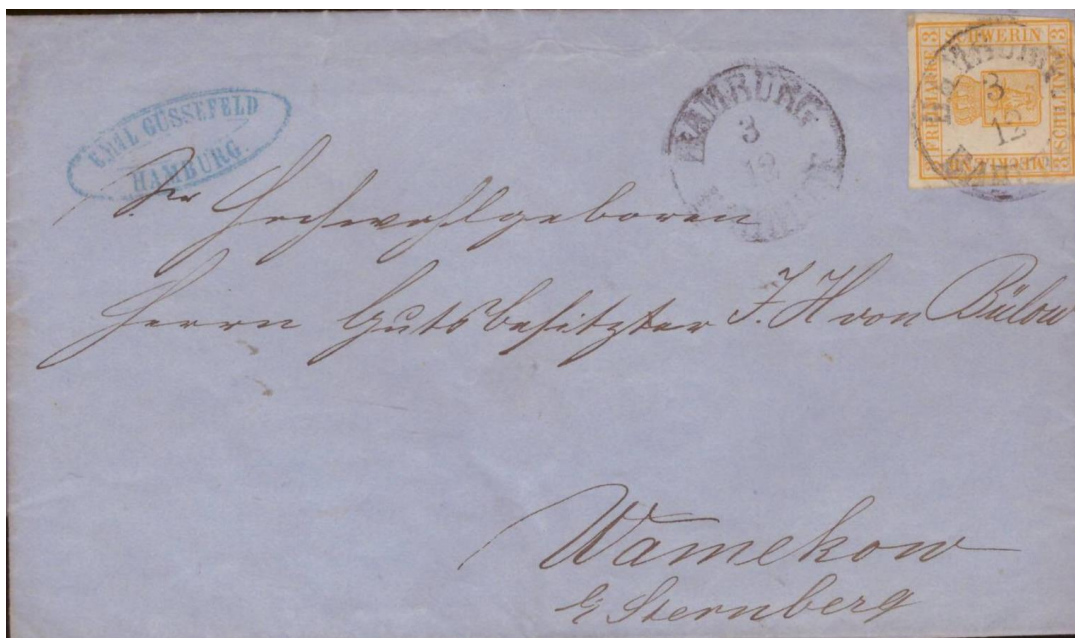 EMIL GÜSSEFELD
HAMBURG.
HAMBURG
3
12
BAHNHOF
SCHWERIN
FREIMARKE
SCHILLINGE
3
3
3
HAMBURG
3
12
Sr Hochwohlgeboren
Herrn Gutsbesitzter J. H von Bülow
Wamekow
Sternberg